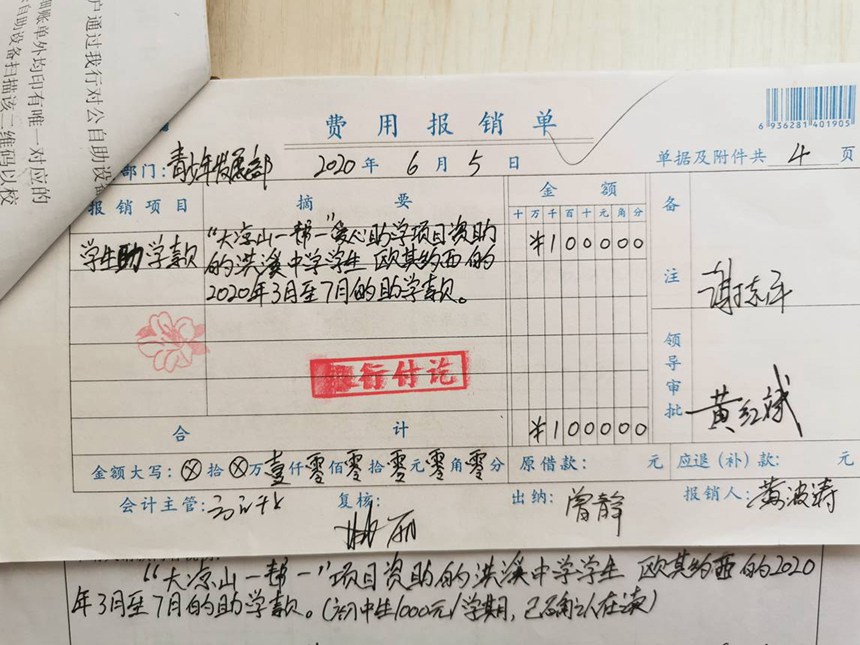 户通过我行对公自助设备
账单外均印有唯一对应的
自助设备扫描该二维码以校
费用报销单
6 936281 401905
部门：青少年发展部 2020年 6月 5日 单据及附件共 4 页
报销项目 摘要 金额 备注
十万千百十元角分
学生助学款 “大凉山一帮一”爱心助学项目资助
的洪溪中学学生 欧其约西的
2020年3月至7月的助学款。
¥100000
银行付讫
领导审批
黄红斌
合计 ¥100000
金额大写：ⓧ拾ⓧ万壹仟零佰零拾零元零角零分 原借款： 元 应退（补）款： 元
会计主管： 复核： 出纳：曾静 报销人：黄波涛
“大凉山一帮一”项目资助的洪溪中学学生 欧其约西的2020
年3月至7月的助学款。（初中生1000元/学期，已确认在读）